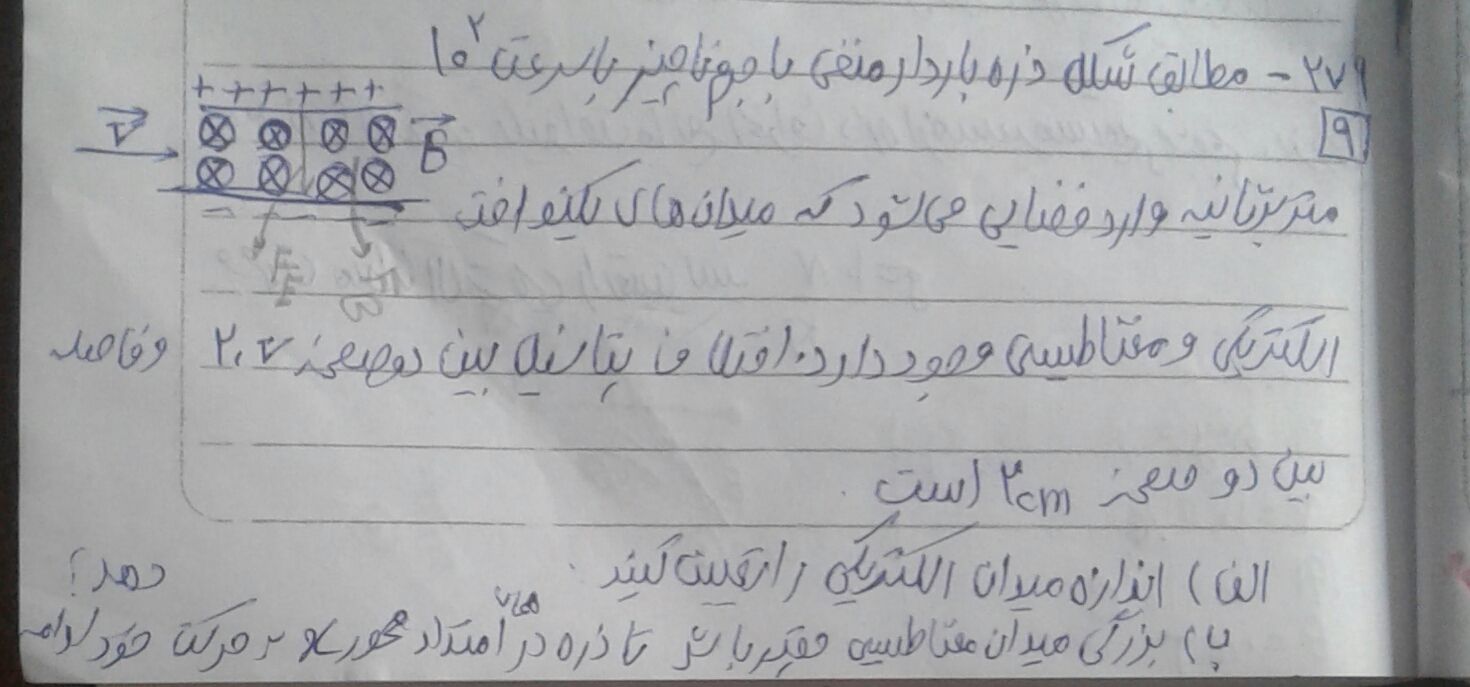 ۲۷۹ - مطابق شکل ذره باردار منفی با جرم ناچیز با سرعت ۱۰^۲
+ + + + + +
V
⊗ ⊗ ⊗ ⊗
B
۹
⊗ ⊗ ⊗ ⊗
متر بر ثانیه وارد فضایی می‌شود که میدان‌های یکنواخت
الکتریکی و مغناطیسی وجود دارد. اختلاف پتانسیل بین دو صفحه ۲۰۷ وفاصله
بین دو صفحه ۲cm است.
الف) اندازه میدان الکتریکی را تعیین کنید.
ب) بزرگی میدان مغناطیسی چقدر باشد تا ذره در همان امتداد محور x بر حرکت خود ادامه
دهد؟